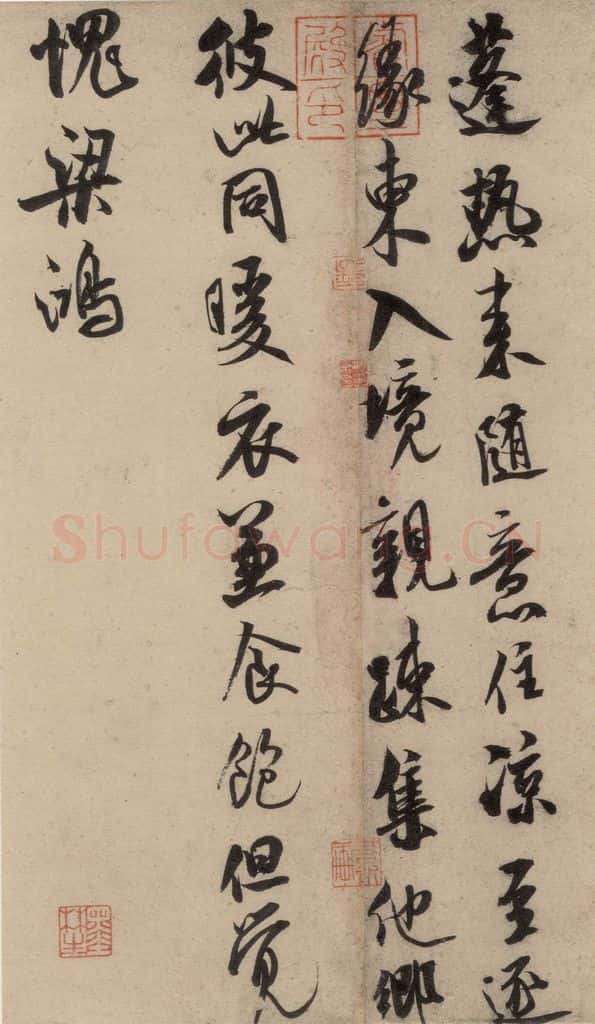 蓬熱来随意住凉至逐
緣東入境親踈集他鄉
彼此同暖衣兼食飽但覺
愧梁鴻
Shufawang.CN